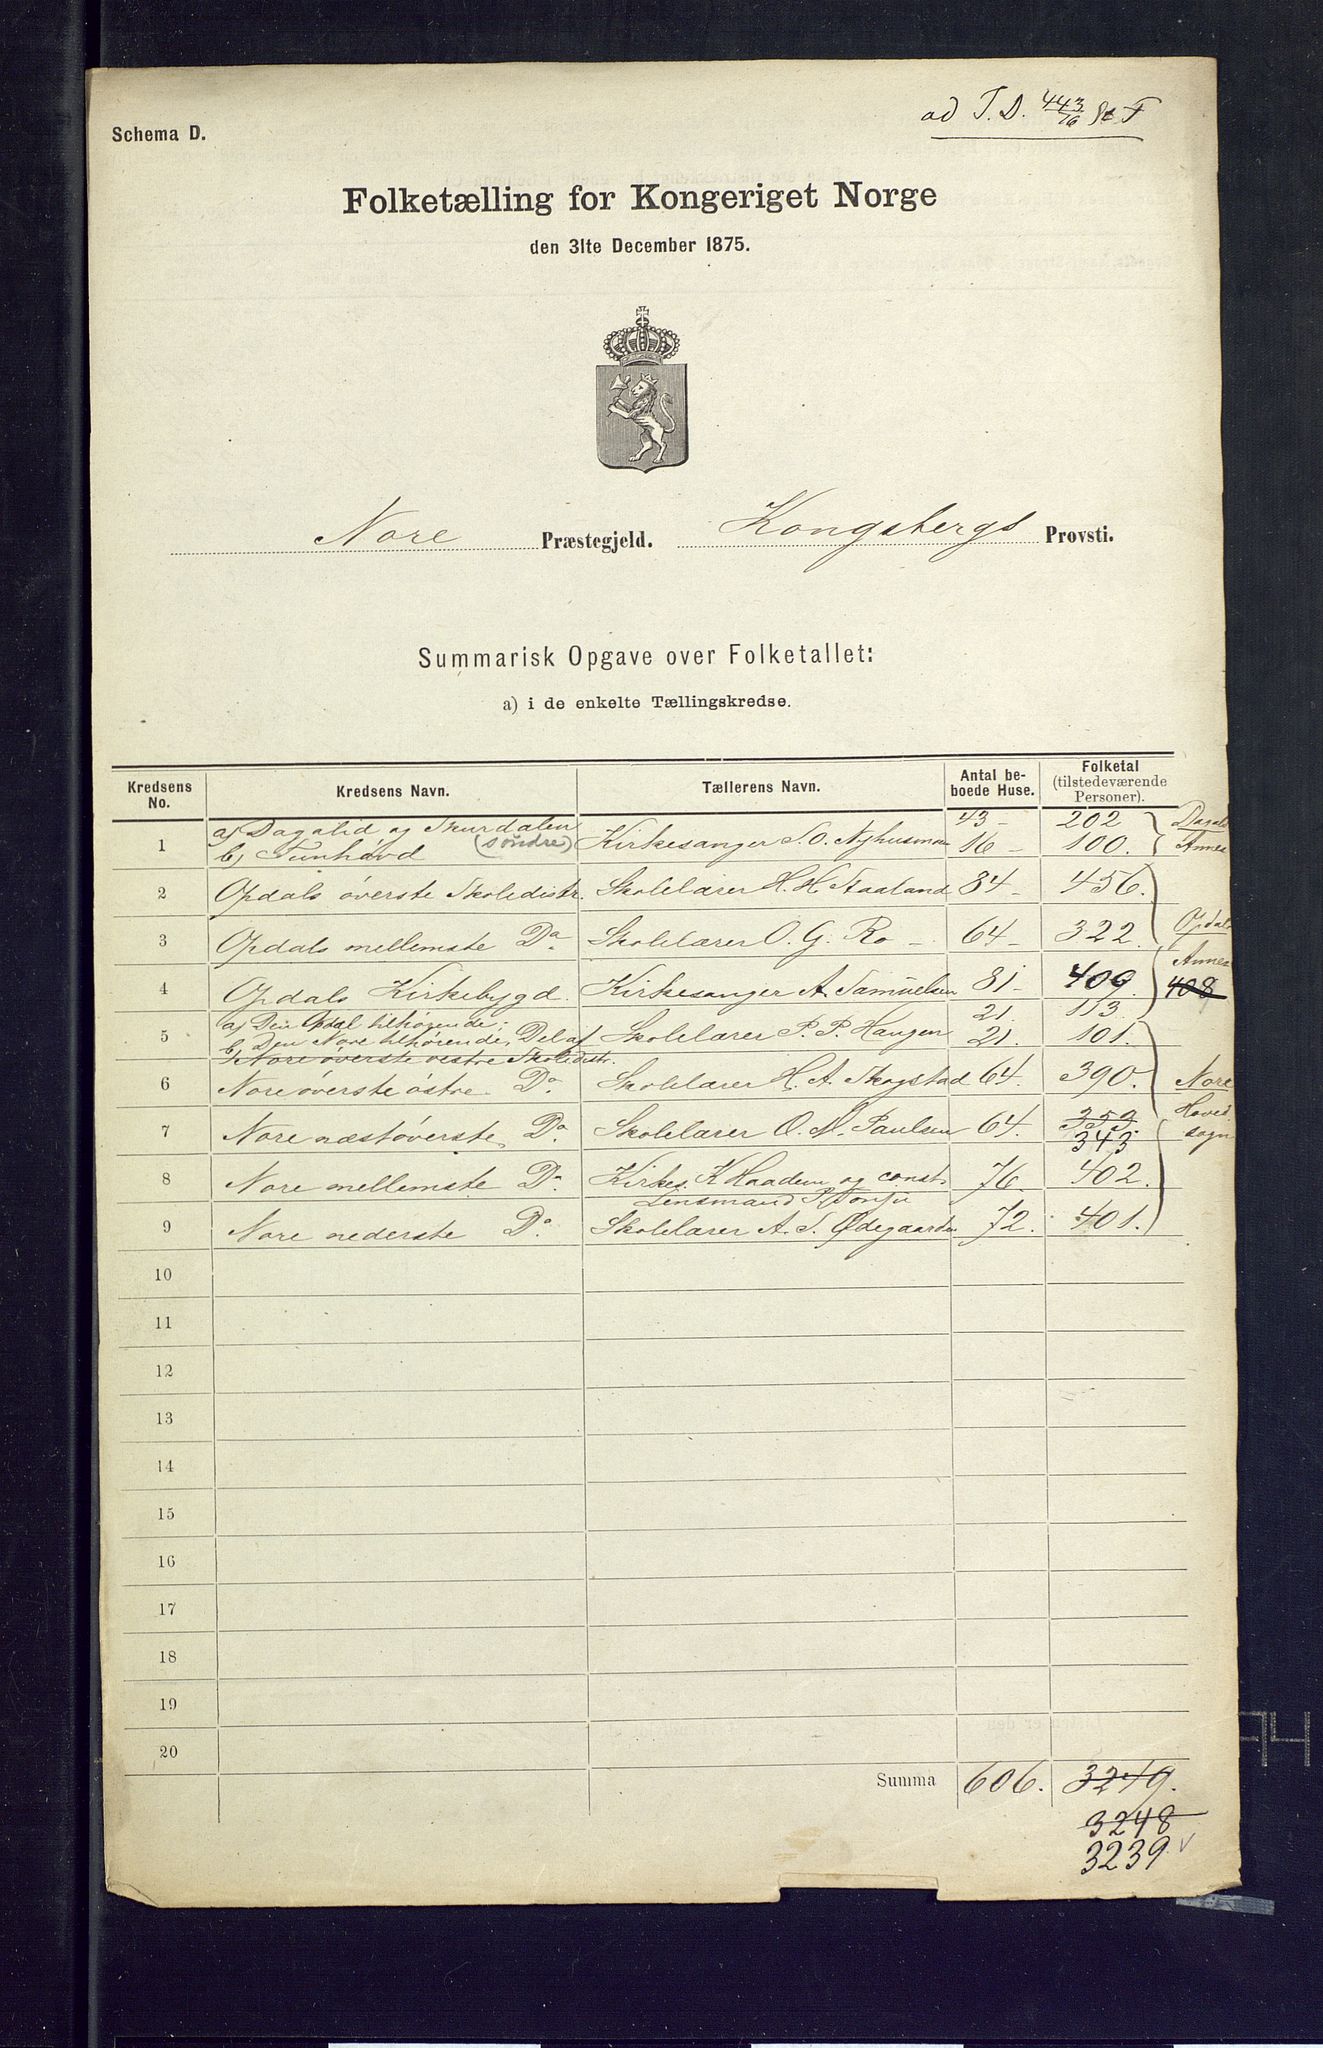 ad T. D. 443/76
Schema D.
Folketælling for Kongeriget Norge
den 31te December 1875.
Nore Præstegjeld. Kongsbergs Provsti.
Summarisk Opgave over Folketallet:
a) i de enkelte Tællingskredse.
Kredsens No. Kredsens Navn. Tællerens Navn. Antal beboede Huse. Folketal (tilstedeværende Personer).
1 a) Dagalid og Skurdalen (søndre) Kirkesanger S. O. Nyhusmoen 43 - 202 Dagali
b) Tunhøvd 16 - 100. Annex
2 Opdals øverste Skoledistr. Skolelærer H. H. Aaland 84 - 456.
3 Opdals mellemste Do. Skolelærer O. G. Ro - 64 - 322. Opdals
4 Opdals Kirkebygd. Kirkesanger A. Samuelsen 81 - 409 Annex 408
5 a) Den Opdal tilhørende; 21. 113
b) Den Nore tilhørende, Del af Skolelærer P. P. Haugen 21. 101.
Nore øverste vestre Skoledistr.
6 Nore øverste østre Do. Skolelærer H. A. Skogstad 64. 390. Nore
7 Nore næstøverste Do. Skolelærer O. M. Paulsen 64. 353. Hoved
343 sogn
8 Nore mellemste Do. Kirkes. K Haadem og const. 76. 402.
Lensmand P. Tonju
9 Nore nederste Do. Skolelærer A. S. Ødegaarden 72. 401.
10
11
12
13
14
15
16
17
18
19
20
Summa 606. 3249.
3248
3239